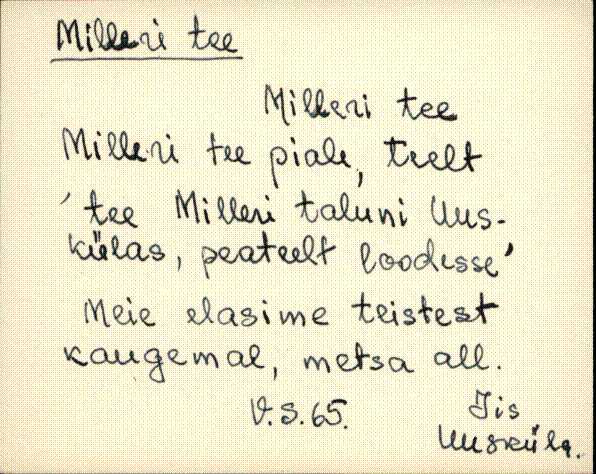 Milleri tee
Milleri tee
Milleri tee piale, teelt
'tee Milleri taluni Uus-
külas, peateelt loodesse'
Meie elasime teistest
kaugemal, metsa all.
V.S.65. Jis
Uusküla.